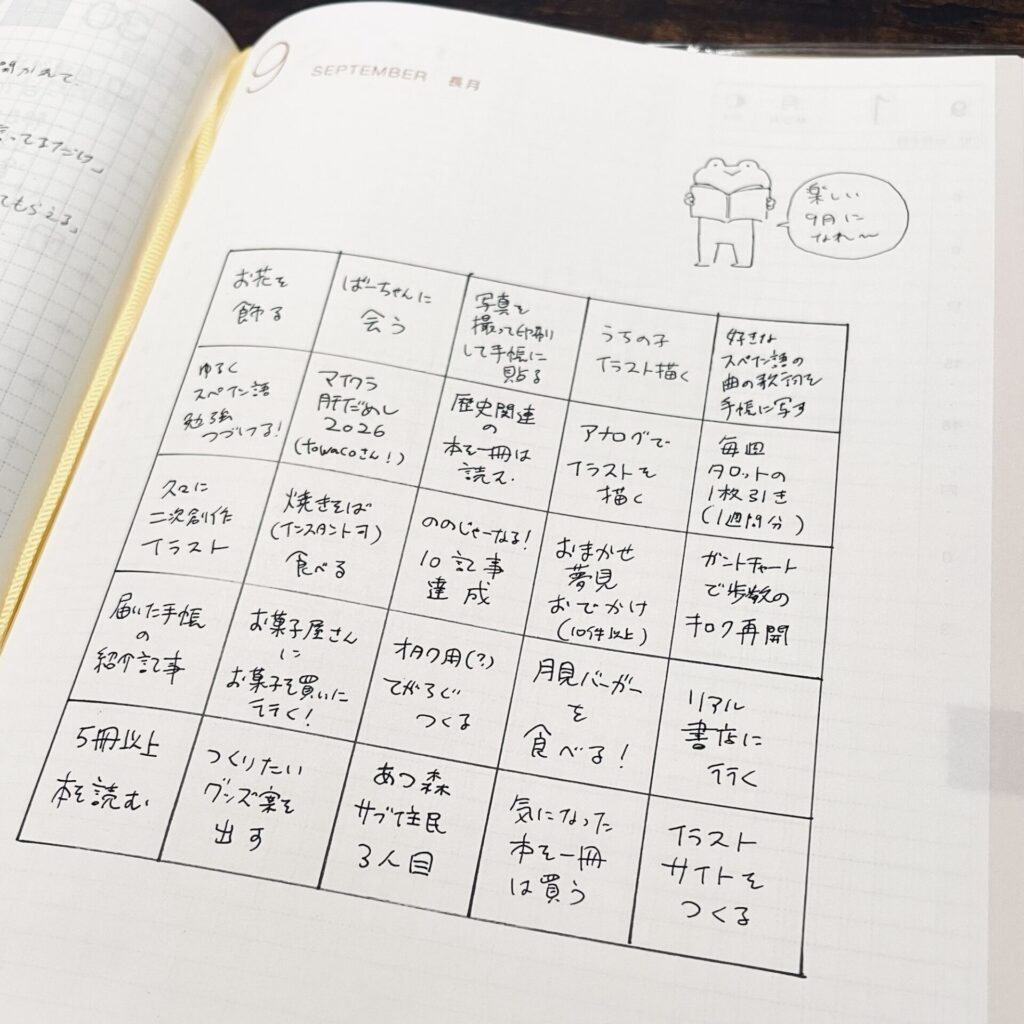 9 SEPTEMBER 長月
楽しい
9月に
なれ〜
お花を
飾る
ばーちゃんに
会う
写真を
撮って印刷
して手帳に
貼る
うちの子
イラスト描く
好きな
スペイン語の
曲の歌詞を
手帳に写す
ゆるく
スペイン語
勉強
つづける!
マイクラ
肝だめし
2026
(towacoさん!)
歴史関連
の
本を一冊は
読む
アナログで
イラストを
描く
毎週
タロットの
1枚引き
(1週間分)
久々に
二次創作
イラスト
焼きそば
(インスタント可)
食べる
ののじゃーなる!
10記事
達成
おまかせ
夢見
おでかけ
(10件以上)
ガントチャート
で歩数の
キロク再開
届いた手帳
の
紹介記事
お菓子屋さん
に
お菓子を買いに
行く!
オタク用(?)
てがろぐ
つくる
月見バーガー
を
食べる!
リアル
書店に
行く
5冊以上
本を読む
つくりたい
グッズ案を
出す
あつ森
サブ住民
3人目
気になった
本を一冊
は買う
イラスト
サイトを
つくる
てもらえる。